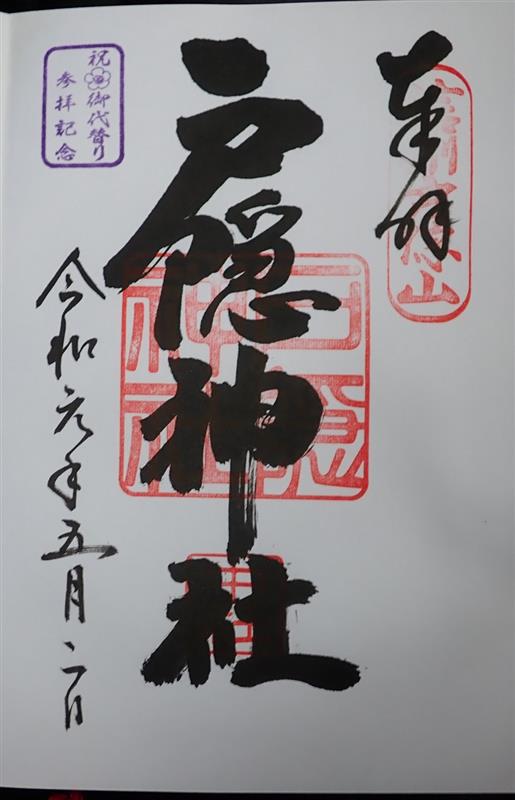 奉拝
戸隠神社
戸隠
神社
令和元年五月二日
祝御代替り
参拝記念